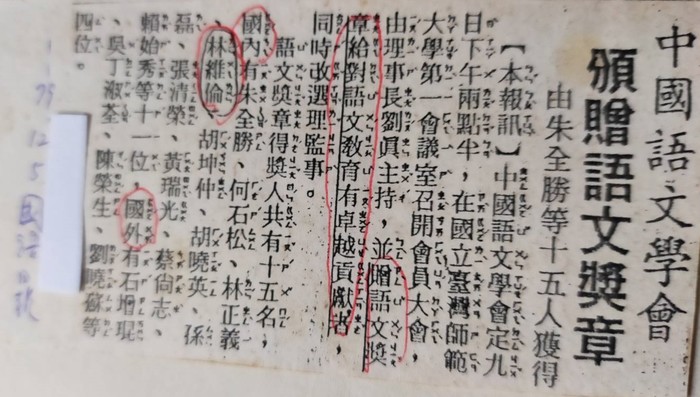 中國語文學會
頒贈語文獎章
由朱全勝等十五人獲得
【本報訊】中國語文學會定九
日下午兩點半,在國立臺灣師範
大學第一會議室召開會員大會,
由理事長劉眞主持,並贈語文獎
章給對語文教育有卓越貢獻者,
同時改選理監事。
語文獎章得獎人共有十五名,
國內有朱全勝、何石松、林正義
、林維倫、胡坤仲、胡曉英、孫
磊、張清榮、黃瑞光、蔡尚志、
賴始秀等十一位,國外有石增琨
、吳丁淑荃、陳榮生、劉曉蘇等
四位。
79 12 5 國語日報